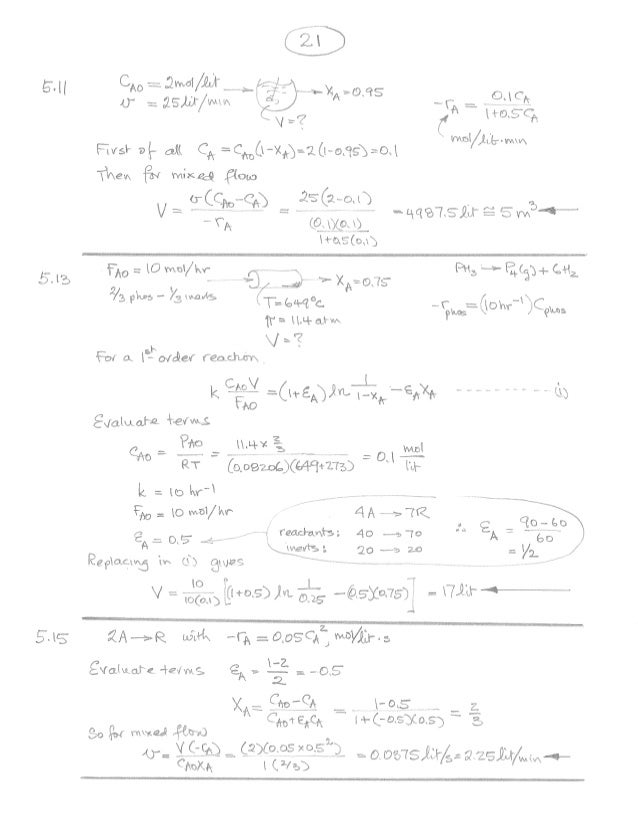 21
5.11 C_A0 = 2 mol/lit → X_A = 0.95 -r_A = 0.1C_A / 1+0.5C_A
v = 25 lit/min V = ? mol/lit·min
First of all C_A = C_A0(1-X_A) = 2(1-0.95) = 0.1
Then for mixed flow
V = v(C_A0-C_A) / -r_A = 25(2-0.1) / (0.1)(0.1) / 1+0.5(0.1) = 4987.5 lit ≅ 5 m³ ←
5.13 F_A0 = 10 mol/hr → X_A = 0.75 PH₃ → P₄(g) + 6H₂
2/3 phos - 1/3 inerts T = 649°C -r_phos = (10 hr⁻¹) C_phos
π = 11.4 atm
V = ?
For a 1st order reaction,
k C_A0 V / F_A0 = (1+ε_A) ln 1 / 1-X_A - ε_A X_A ---------- (i)
Evaluate terms
C_A0 = P_A0 / RT = 11.4 × 2/3 / (0.08206)(649+273) = 0.1 mol / lit
k = 10 hr⁻¹
F_A0 = 10 mol/hr
ε_A = 0.5 ←
4A → 7R
reactants: 40 → 70
inerts: 20 → 20
∴ ε_A = 90-60 / 60
= 1/2
Replacing in (i) gives
V = 10 / 10(0.1) [(1+0.5) ln 1 / 0.25 - (0.5)(0.75)] = 17 lit ←
5.15 2A → R with -r_A = 0.05 C_A², mol/lit·s
Evaluate terms ε_A = 1-2 / 2 = -0.5
X_A = C_A0-C_A / C_A0+ε_A C_A = 1-0.5 / 1+(-0.5)(0.5) = 2/3
So for mixed flow
v = V(-r_A) / C_A0 X_A = (2)(0.05×0.5²) / 1(2/3) = 0.0375 lit/s = 2.25 lit/min ←